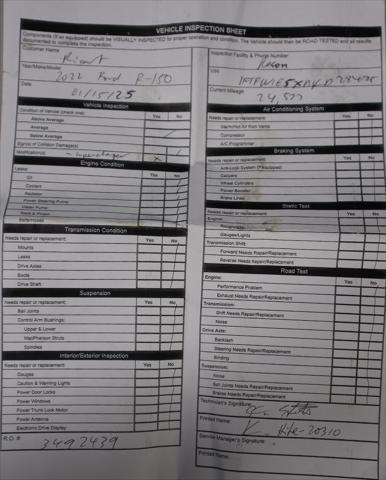 VEHICLE INSPECTION SHEET
Components (if so equipped) should be VISUALLY INSPECTED for proper operation and condition. The vehicle should then be ROAD TESTED and all results
documented to complete the inspection.
Customer Name
Year/Make/Model
2022 Ford F-150
Date
01/15/25
Vehicle Inspection
Condition of Vehicle (check one): Yes No
Above Average
Average
Below Average
Sign(s) of Collision Damage(s)
Modification(s)
Engine Condition
Leaks: Yes No
Oil
Coolant
Radiator
Power Steering Pump
Water Pump
Rack & Pinion
Transmission Condition
Needs repair or replacement: Yes No
Mounts
Leaks
Drive Axles
Boots
Drive Shaft
Suspension
Needs repair or replacement: Yes No
Ball Joints
Control Arm Bushings:
Upper & Lower
MacPherson Struts
Spindles
Interior/Exterior Inspection
Needs repair or replacement: Yes No
Gauges
Caution & Warning Lights
Power Door Locks
Power Windows
Power Trunk Lock Motor
Power Antenna
Electronic Drive Display
R.O. #
3492439
Inspection Facility & Phone Number
VIN
Current Mileage
Air Conditioning System
Needs repair or replacement: Yes No
Warm/Hot Air from Vents
Compressor
A/C Programmer
Braking System
Needs repair or replacement: Yes No
Anti-Lock System (if equipped)
Calipers
Wheel Cylinders
Power Booster
Brake Lines
Static Test
Engine: Yes No
Gauges/Lights
Transmission Shift:
Forward Needs Repair/Replacement
Reverse Needs Repair/Replacement
Road Test
Engine: Yes No
Performance Problem
Exhaust Needs Repair/Replacement
Transmission:
Shift Needs Repair/Replacement
Noise
Drive Axle:
Backlash
Steering Needs Repair/Replacement
Binding
Suspension:
Noise
Ball Joints Needs Repair/Replacement
Brakes Needs Repair/Replacement
Technician's Signature:
Printed Name:
Service Manager's Signature:
Printed Name: